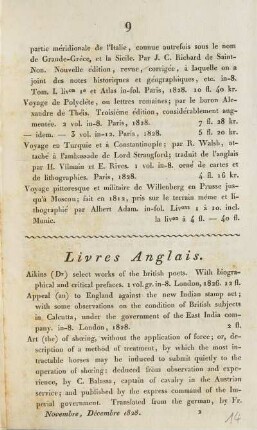 9
partie méridionale de l'Italie, connue autrefois sous le nom
de Grande-Grèce, et la Sicile. Par J. C. Richard de Saint-
Non. Nouvelle édition, revue, corrigée, à laquelle on a
joint des notes historiques et géographiques, etc. in-8.
Tom. I. livon 1e et Atlas in-fol. Paris, 1828. 10 fl. 40 kr.
Voyage de Polyclète, ou lettres romaines; par le baron Alex-
andre de Théis. Troisième édition, considérablement aug-
mentée. 2 vol. in-8. Paris, 1828. 7 fl. 28 kr.
— idem. — 3 vol. in-12. Paris, 1828. 5 fl. 20 kr.
Voyage en Turquie et à Constantinople; par R. Walsh, at-
taché à l'ambassade de Lord Strangford; traduit de l'anglais
par H. Vilmain et E. Rives. 1 vol. in-8. orné de cartes et
de lithographies. Paris, 1828. 4 fl. 16 kr.
Voyage pittoresque et militaire de Willenberg en Prusse jus-
qu'à Moscou; fait en 1812, pris sur le terrain même et li-
thographié par Albert Adam. in-fol. Livons 1 à 10. incl.
Munic. la livon à 4 fl. — 40 fl.
Livres Anglais.
Aikins (Dr) select works of the british poets. With biogra-
phical and critical prefaces. 1 vol. gr. in-8. London, 1826. 12 fl.
Appeal (an) to England against the new Indian stamp act;
with some observations on the condition of British subjects
in Calcutta, under the government of the East India com-
pany. in-8. London, 1828. 2 fl.
Art (the) of shoeing, without the application of force; or, des-
cription of a method of treatment, by which the most in-
tractable horses may be induced to submit quietly to the
operation of shoeing; deduced from observation and expe-
rience, by C. Balassa, captain of cavalry in the Austrian
service; and published by the express command of the Im-
perial government. Translated from the german, by Fr.
Novembre, Décembre 1828. 2
14